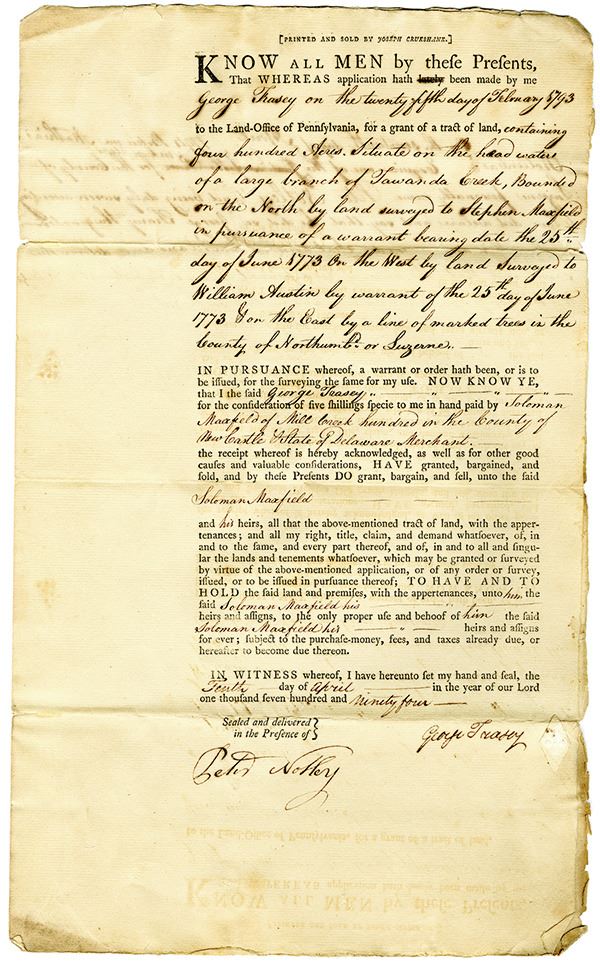 [PRINTED AND SOLD BY JOSEPH CRUKSHANK.]
KNOW ALL MEN by theſe Preſents,
That WHEREAS application hath lately been made by me
George Trasey on the twenty fifth day of February 1793
to the Land-Office of Pennſylvania, for a grant of a tract of land, containing
four hundred Acres. Situate on the head waters
of a large branch of Tawanda Creek, Bounded
on the North by land surveyed to Stephen Maxfield
in pursuance of a warrant bearing date the 25th
day of June 1773 On the West by land Surveyed to
William Austin by warrant of the 25th day of June
1773 & on the East by a line of marked trees in the
County of Northumbd. or Luzerne. —
IN PURSUANCE whereof, a warrant or order hath been, or is to
be iſſued, for the ſurveying the ſame for my uſe. NOW KNOW YE,
that I the ſaid George Trasey
for the conſideration of five ſhillings ſpecie to me in hand paid by Soloman
Maxfield of Mill Creek hundred in the County of
New Castle & State of Delaware Merchant. —
the receipt whereof is hereby acknowledged, as well as for other good
cauſes and valuable conſiderations, HAVE granted, bargained, and
ſold, and by theſe Preſents DO grant, bargain, and ſell, unto the ſaid
Soloman Maxfield
and his heirs, all that the above-mentioned tract of land, with the apper-
tenances; and all my right, title, claim, and demand whatſoever, of, in
and to the ſame, and every part thereof, and of, in and to all and ſingu-
lar the lands and tenements whatſoever, which may be granted or ſurveyed
by virtue of the above-mentioned application, or of any order or ſurvey,
iſſued, or to be iſſued in purſuance thereof; TO HAVE AND TO
HOLD the ſaid land and premiſes, with the appertenances, unto him the
ſaid Soloman Maxfield his
heirs and aſſigns, to the only proper uſe and behoof of him the ſaid
Soloman Maxfield his — heirs and aſſigns
for ever; ſubject to the purchaſe-money, fees, and taxes already due, or
hereafter to become due thereon.
IN WITNESS whereof, I have hereunto ſet my hand and ſeal, the
Tenth day of April — in the year of our Lord
one thouſand ſeven hundred and ninety four —
Sealed and delivered
in the Presence of
George Trasey
Peter